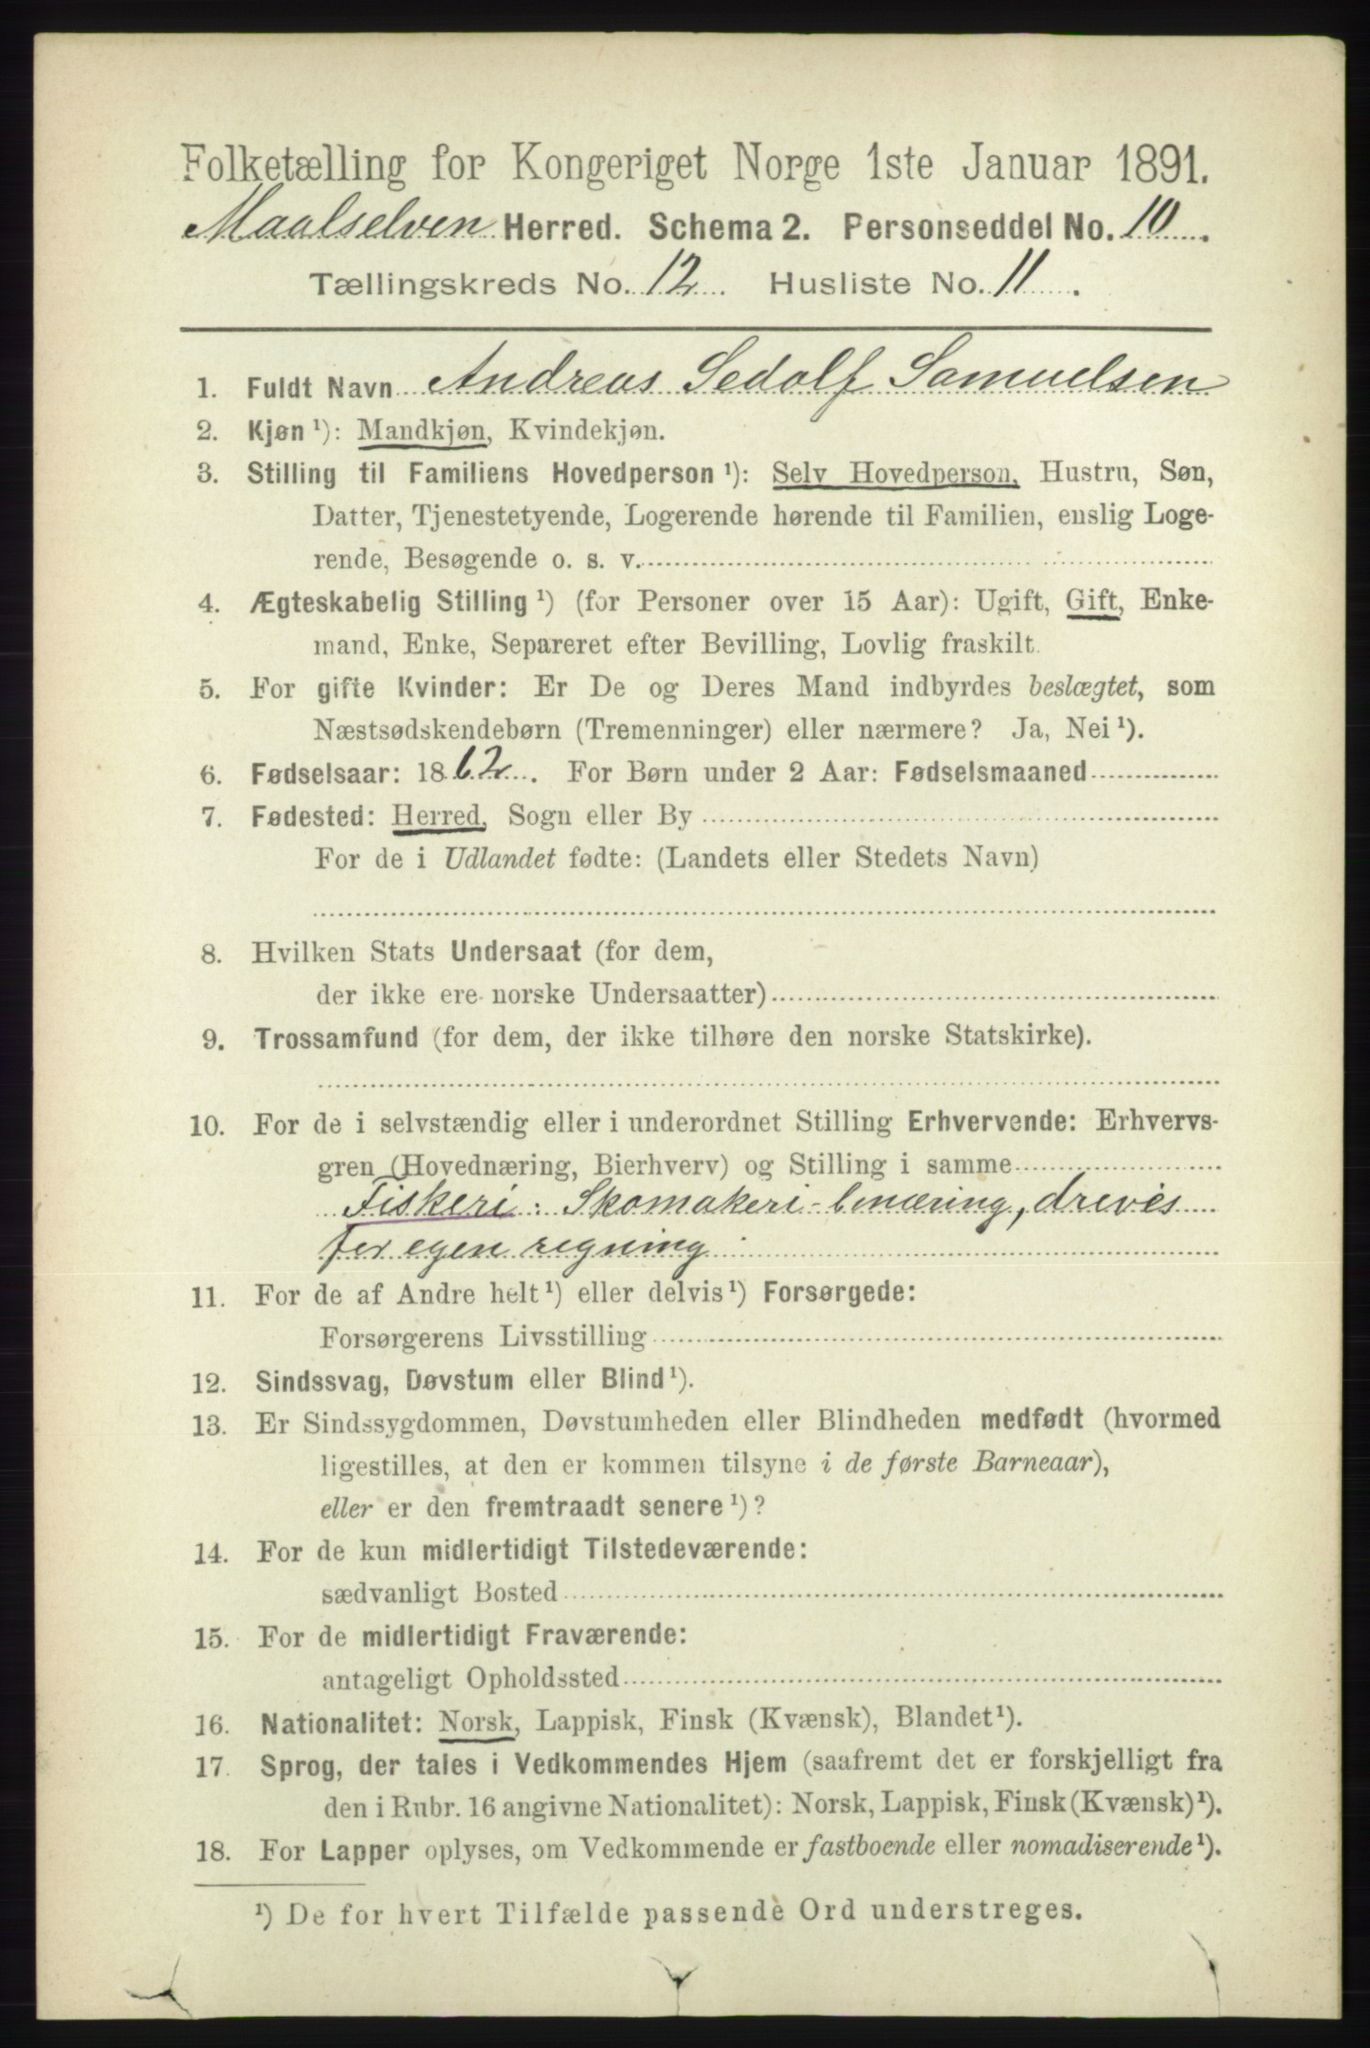 Folketælling for Kongeriget Norge 1ste Januar 1891.
Maalselven Herred. Schema 2. Personseddel No. 10.
Tællingskreds No. 12. Husliste No. 11.
1. Fuldt Navn Andreas Sedolf Samuelsen
2. Kjøn ¹): Mandkjøn, Kvindekjøn.
3. Stilling til Familiens Hovedperson ¹): Selv Hovedperson, Hustru, Søn,
Datter, Tjenestetyende, Logerende hørende til Familien, enslig Loge-
rende, Besøgende o. s. v.
4. Ægteskabelig Stilling ¹) (for Personer over 15 Aar): Ugift, Gift, Enke-
mand, Enke, Separeret efter Bevilling, Lovlig fraskilt.
5. For gifte Kvinder: Er De og Deres Mand indbyrdes beslægtet, som
Næstsødskendebørn (Tremenninger) eller nærmere? Ja, Nei ¹).
6. Fødselsaar: 1862. For Børn under 2 Aar: Fødselsmaaned
7. Fødested: Herred, Sogn eller By
For de i Udlandet fødte: (Landets eller Stedets Navn)
8. Hvilken Stats Undersaat (for dem,
der ikke ere norske Undersaatter)
9. Trossamfund (for dem, der ikke tilhøre den norske Statskirke).
10. For de i selvstændig eller i underordnet Stilling Erhvervende: Erhvervs-
gren (Hovednæring, Bierhverv) og Stilling i samme
Fiskeri: Skomakeri-binæring, drevis
for egen regning
11. For de af Andre helt ¹) eller delvis ¹) Forsørgede:
Forsørgerens Livsstilling
12. Sindssvag, Døvstum eller Blind ¹).
13. Er Sindssygdommen, Døvstumheden eller Blindheden medfødt (hvormed
ligestilles, at den er kommen tilsyne i de første Barneaar),
eller er den fremtraadt senere ¹)?
14. For de kun midlertidigt Tilstedeværende:
sædvanligt Bosted
15. For de midlertidigt Fraværende:
antageligt Opholdssted
16. Nationalitet: Norsk, Lappisk, Finsk (Kvænsk), Blandet ¹).
17. Sprog, der tales i Vedkommendes Hjem (saafremt det er forskjelligt fra
den i Rubr. 16 angivne Nationalitet): Norsk, Lappisk, Finsk (Kvænsk) ¹).
18. For Lapper oplyses, om Vedkommende er fastboende eller nomadiserende ¹).
¹) De for hvert Tilfælde passende Ord understreges.